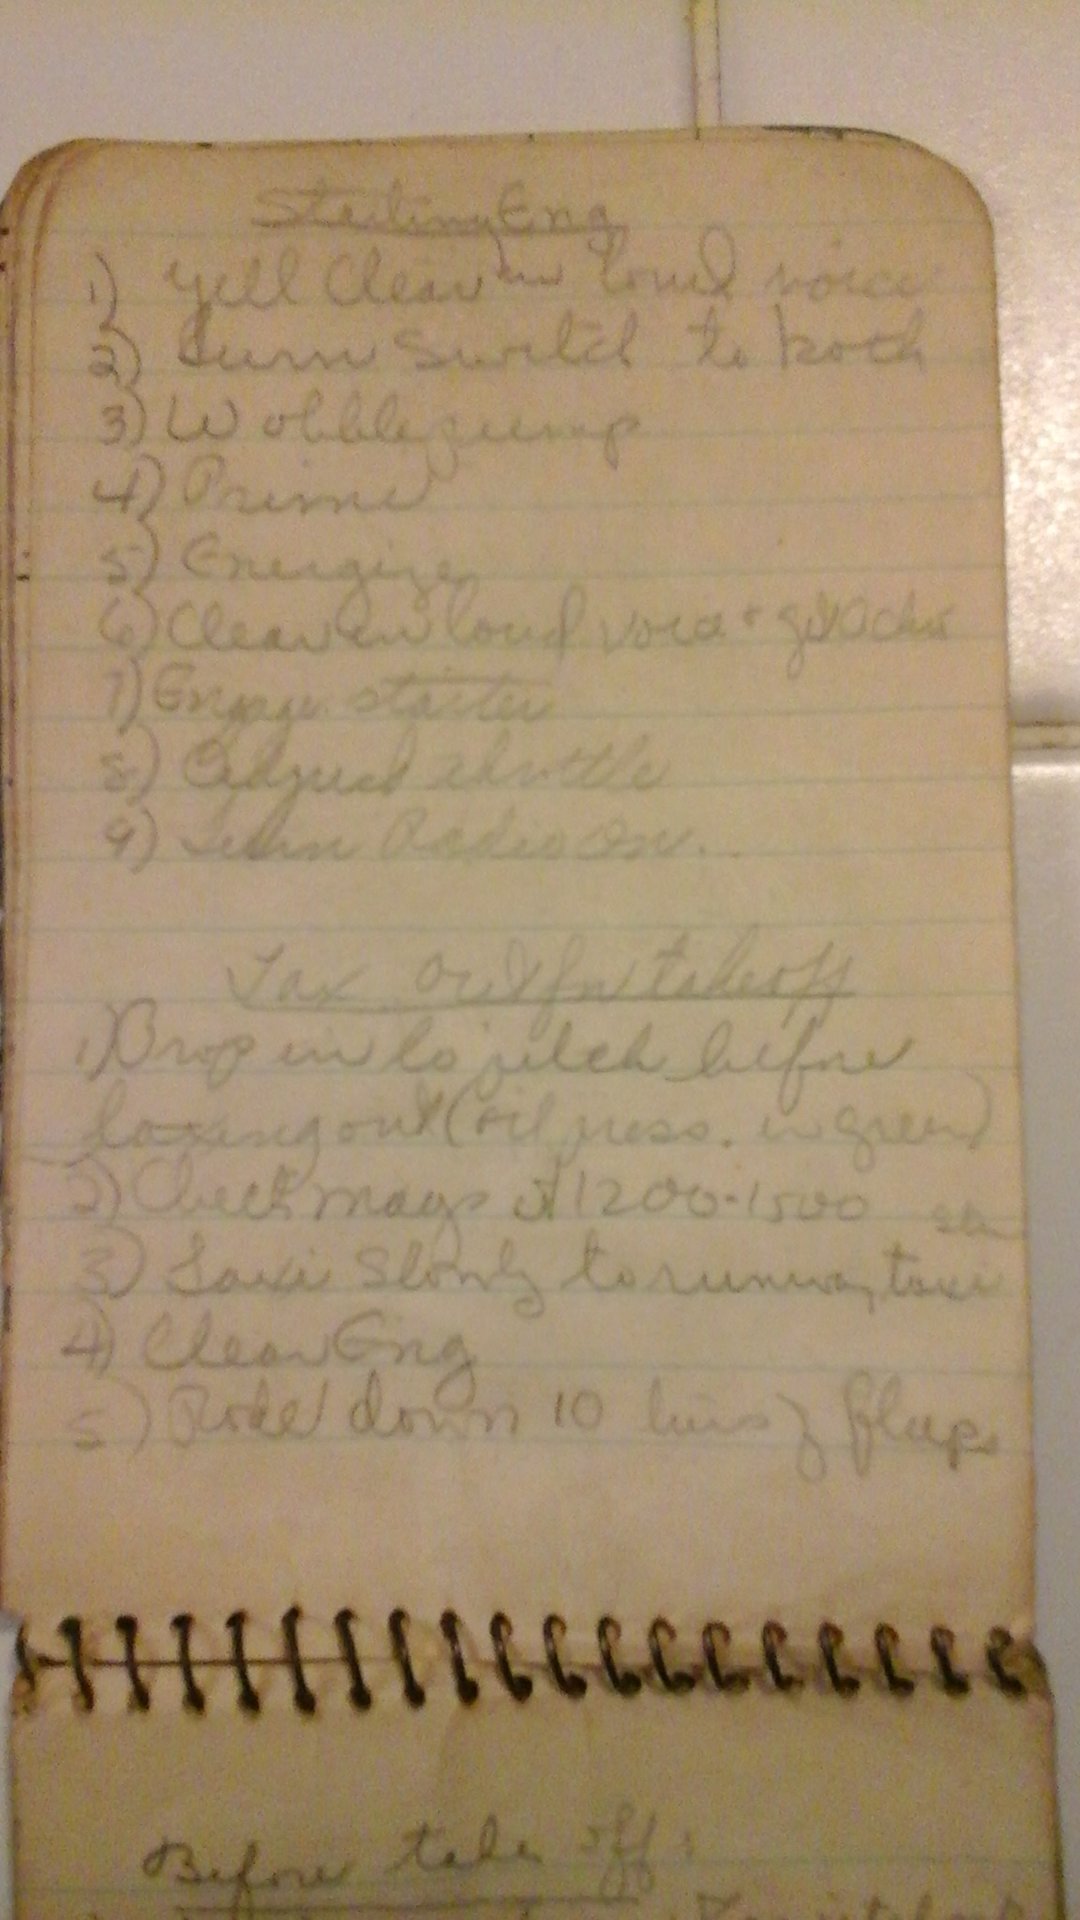 Starting Eng
1) Yell Clear in loud voice
2) Turn Switch to both
3) Wobble pump
4) Prime
5) Energize
6) Clear in loud voice +
7) Engage starter
8) Adjust throttle
9) Turn Radio On.
Tax out for takeoff
1) Drop in lo pitch before
taxing out (oil press. in green)
2) Check mags at 1200-1500
3) Taxi Slowly to runway taxi
4) Clear Eng
5) Role down 10 of flaps
Before take off: